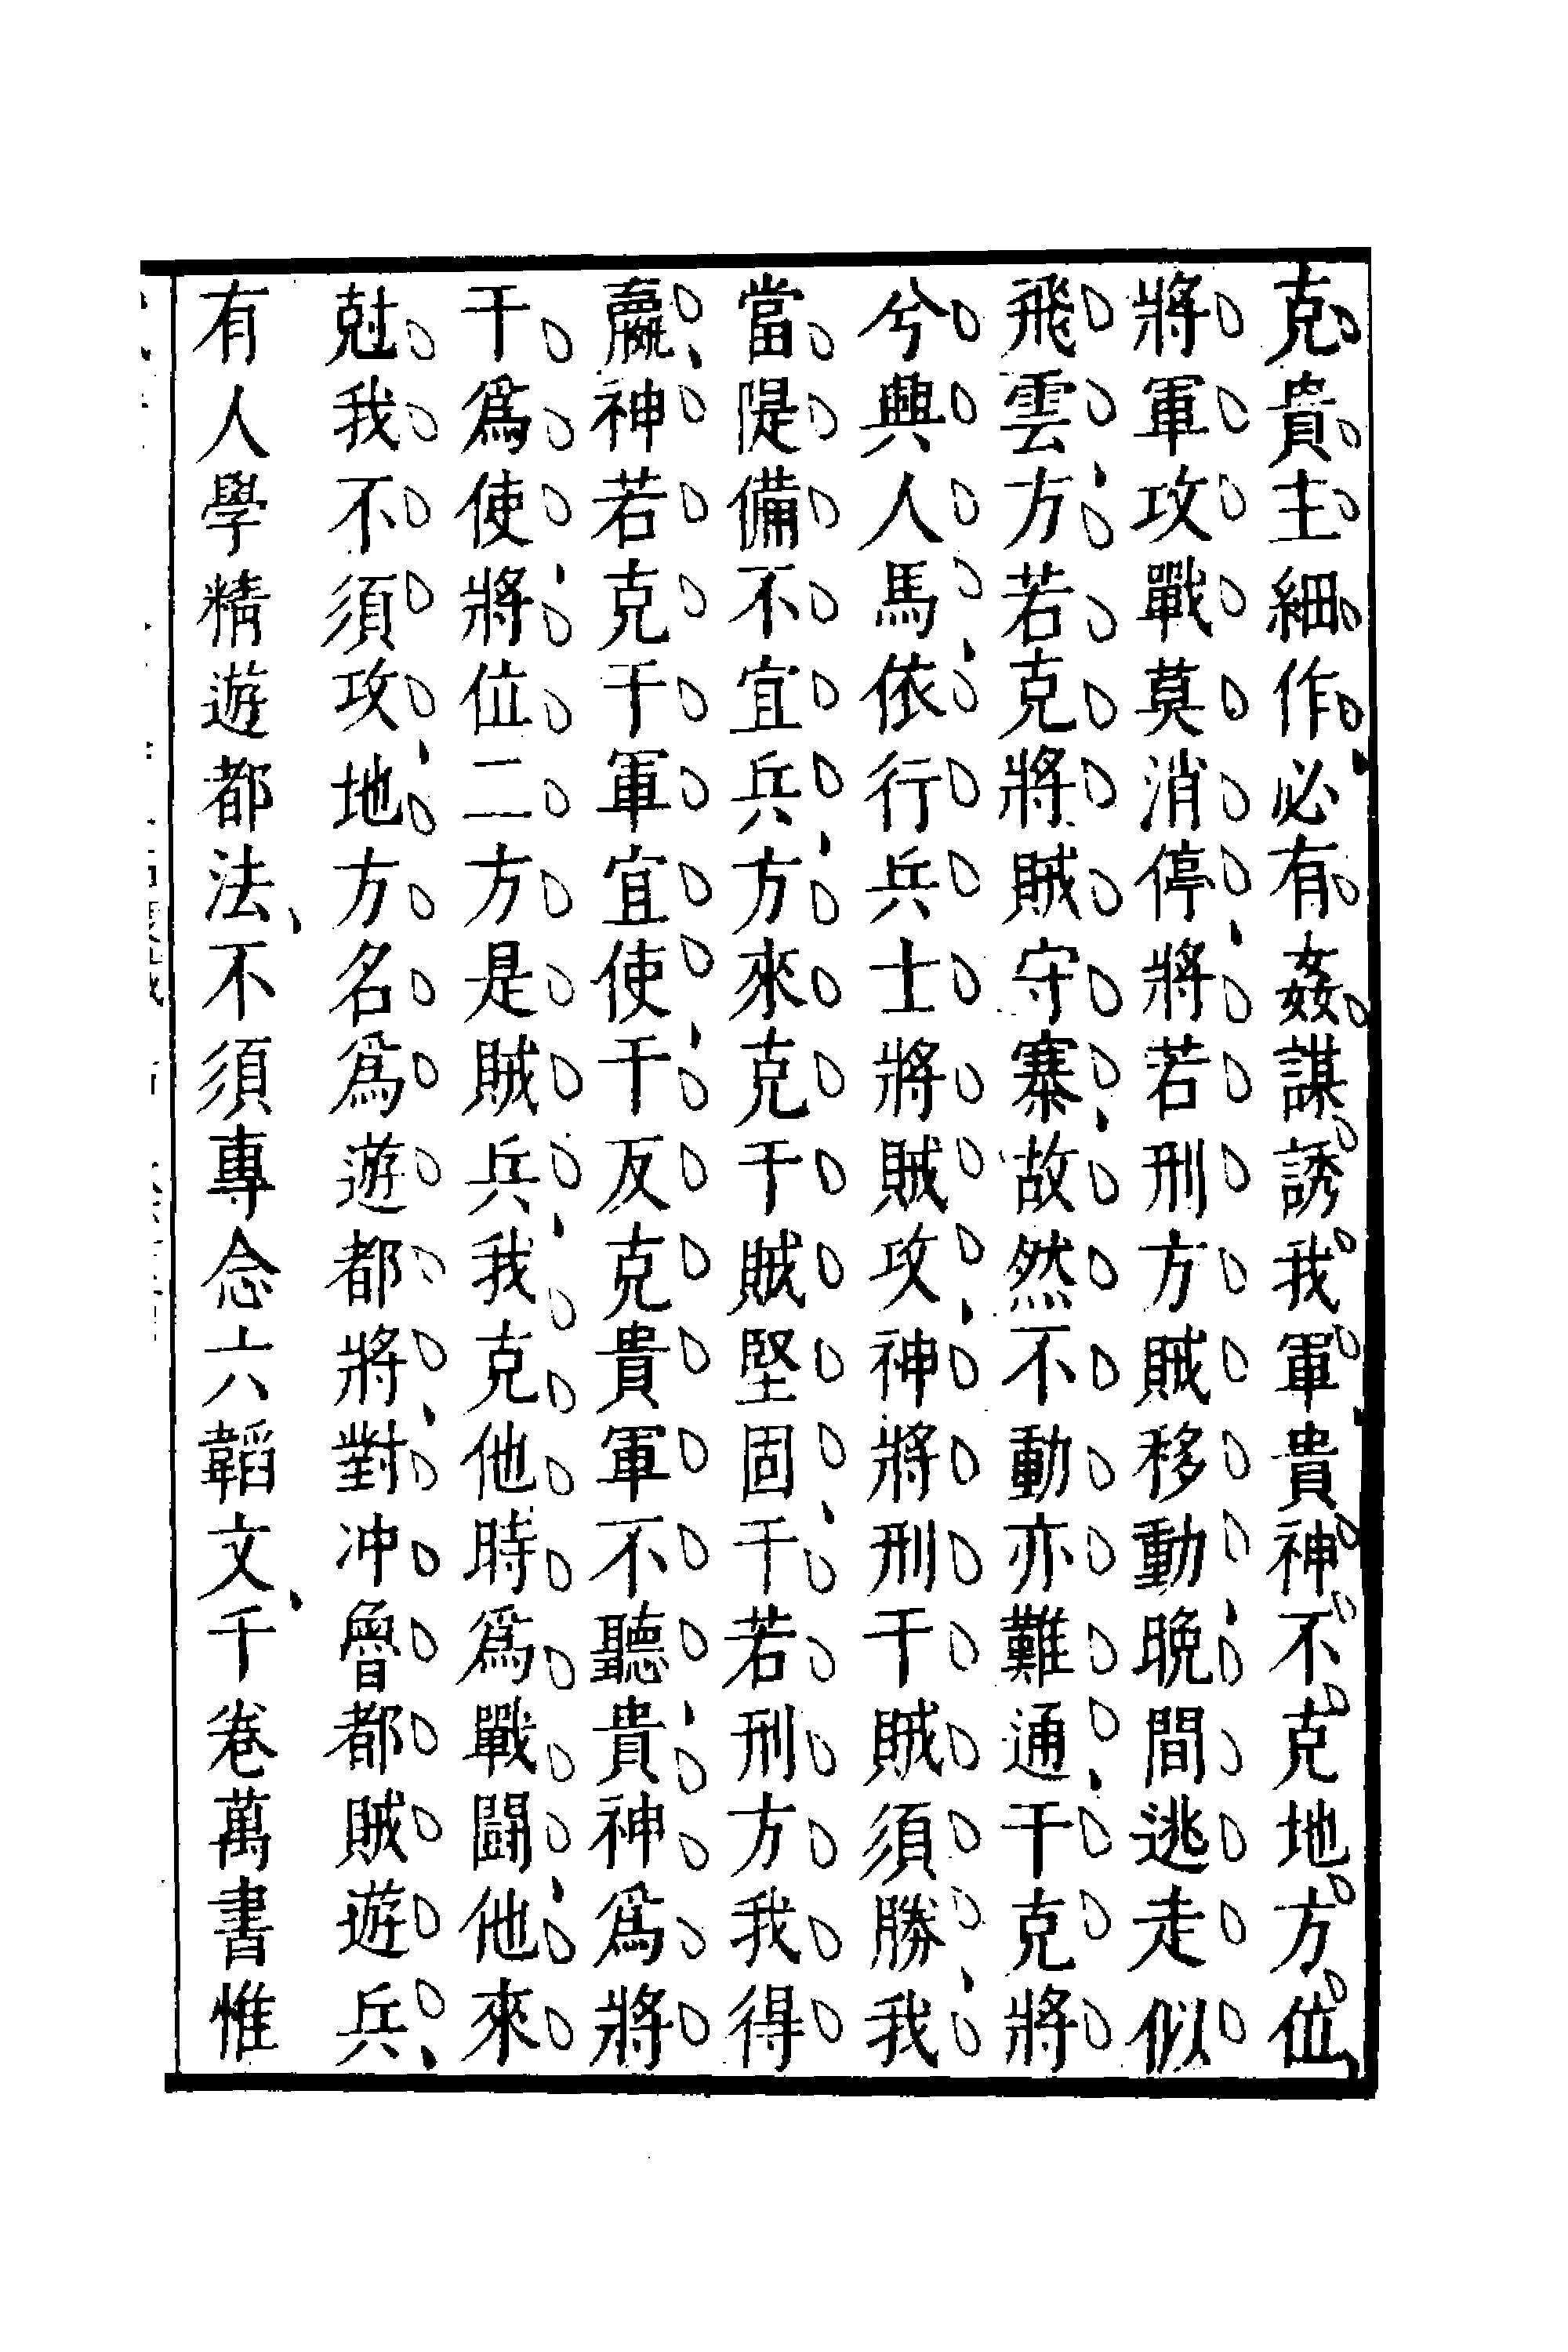 克貴主細作必有姦謀誘我軍貴神不克地方位
將軍攻戰莫消停將若刑方賊移動晚間逃走似
飛雲方若克將賊守寨故然不動亦難通干克將
兮興人馬依行兵士將賊攻神將刑干賊須勝我
當隄備不宜兵方來克干賊堅固干若刑方我得
贏神若克干軍宜使干反克貴軍不聽貴神爲將
干爲使將位二方是賊兵我克他時爲戰鬪他來
尅我不須攻地方名爲遊都將對冲魯都賊遊兵
有人學精遊都法不須專念六韜文千卷萬書惟